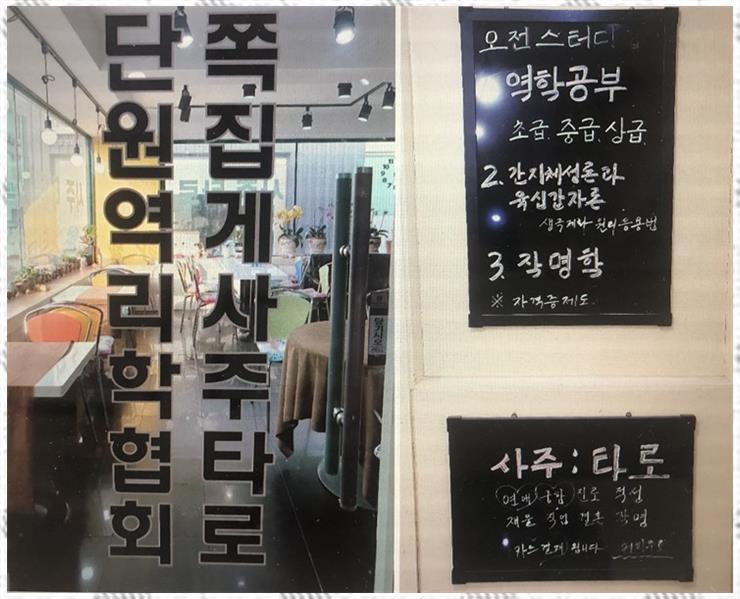 단원역리학협회
쪽집게사주타로
당기시오
오전 스터디
역학공부
초급, 중급, 상급
2. 간지체성론과
육십갑자론
생극제화 원리등용법
3. 작명학
※ 자격증제도
사주 : 타로
연애 궁합 진로 적성
재물 직업 결혼 작명
카드결제 됩니다